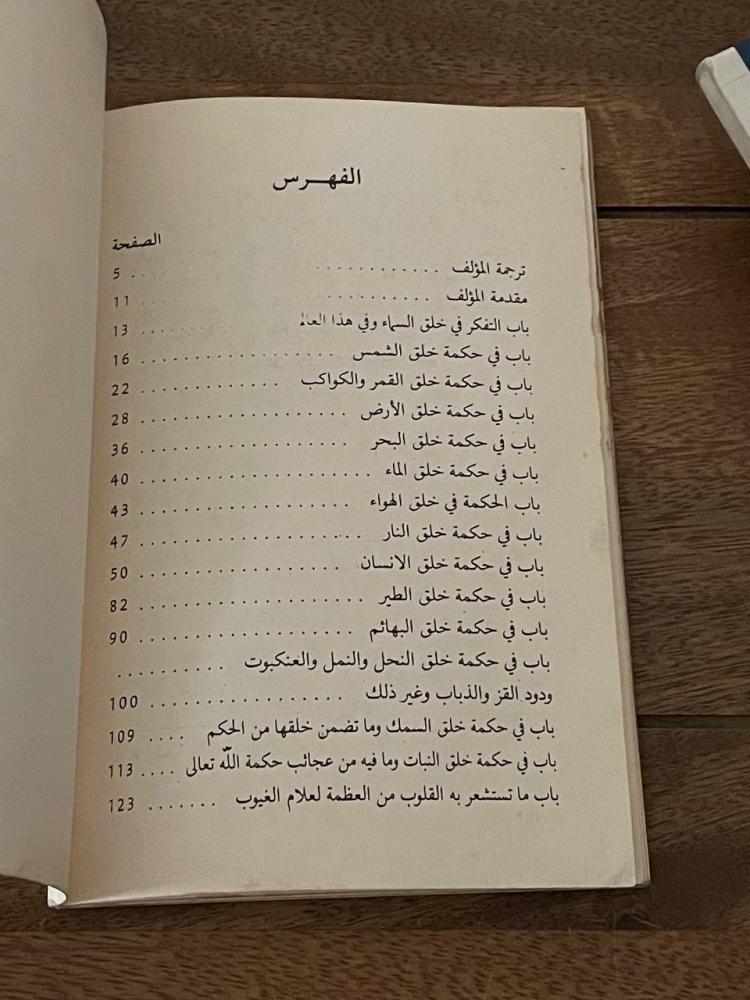 الفهـــرس
الصفحة
ترجمة المؤلف . . . . . . . . . . . . . . . . . . . . 5
مقدمة المؤلف . . . . . . . . . . . . . . . . . . . . 11
باب التفكر في خلق السماء وفي هذا العالم . . . . . . . . . . . 13
باب في حكمة خلق الشمس . . . . . . . . . . . . . . . . . 16
باب في حكمة خلق القمر والكواكب . . . . . . . . . . . . . 22
باب في حكمة خلق الأرض . . . . . . . . . . . . . . . . . . 28
باب في حكمة خلق البحر . . . . . . . . . . . . . . . . . . 36
باب في حكمة خلق الماء . . . . . . . . . . . . . . . . . . . . 40
باب الحكمة في خلق الهواء . . . . . . . . . . . . . . . . . . 43
باب في حكمة خلق النار . . . . . . . . . . . . . . . . . . . 47
باب في حكمة خلق الانسان . . . . . . . . . . . . . . . . . 50
باب في حكمة خلق الطير . . . . . . . . . . . . . . . . . . . 82
باب في حكمة خلق البهائم . . . . . . . . . . . . . . . . . . 90
باب في حكمة خلق النحل والنمل والعنكبوت . . . . . . . . . .
ودود القز والذباب وغير ذلك . . . . . . . . . . . . . . . . . 100
باب في حكمة خلق السمك وما تضمن خلقها من الحكم . . . . 109
باب في حكمة خلق النبات وما فيه من عجائب حكمة اللّه تعالى . . . . 113
باب ما تستشعر به القلوب من العظمة لعلام الغيوب . . . . . . . 123